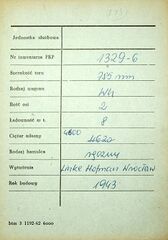 Jednostka służbowa
Nr inwentarza PKP 1329-6
Szerokość toru 785 mm
Rodzaj wagonu Wh
Ilość osi 2
Ładowność w t. 8
Ciężar własny 4600
Rodzaj hamulca ręczny
Wytwórnia Linke Hofman Wrocław
Rok budowy 1943
bzm 3 1192-62 6000